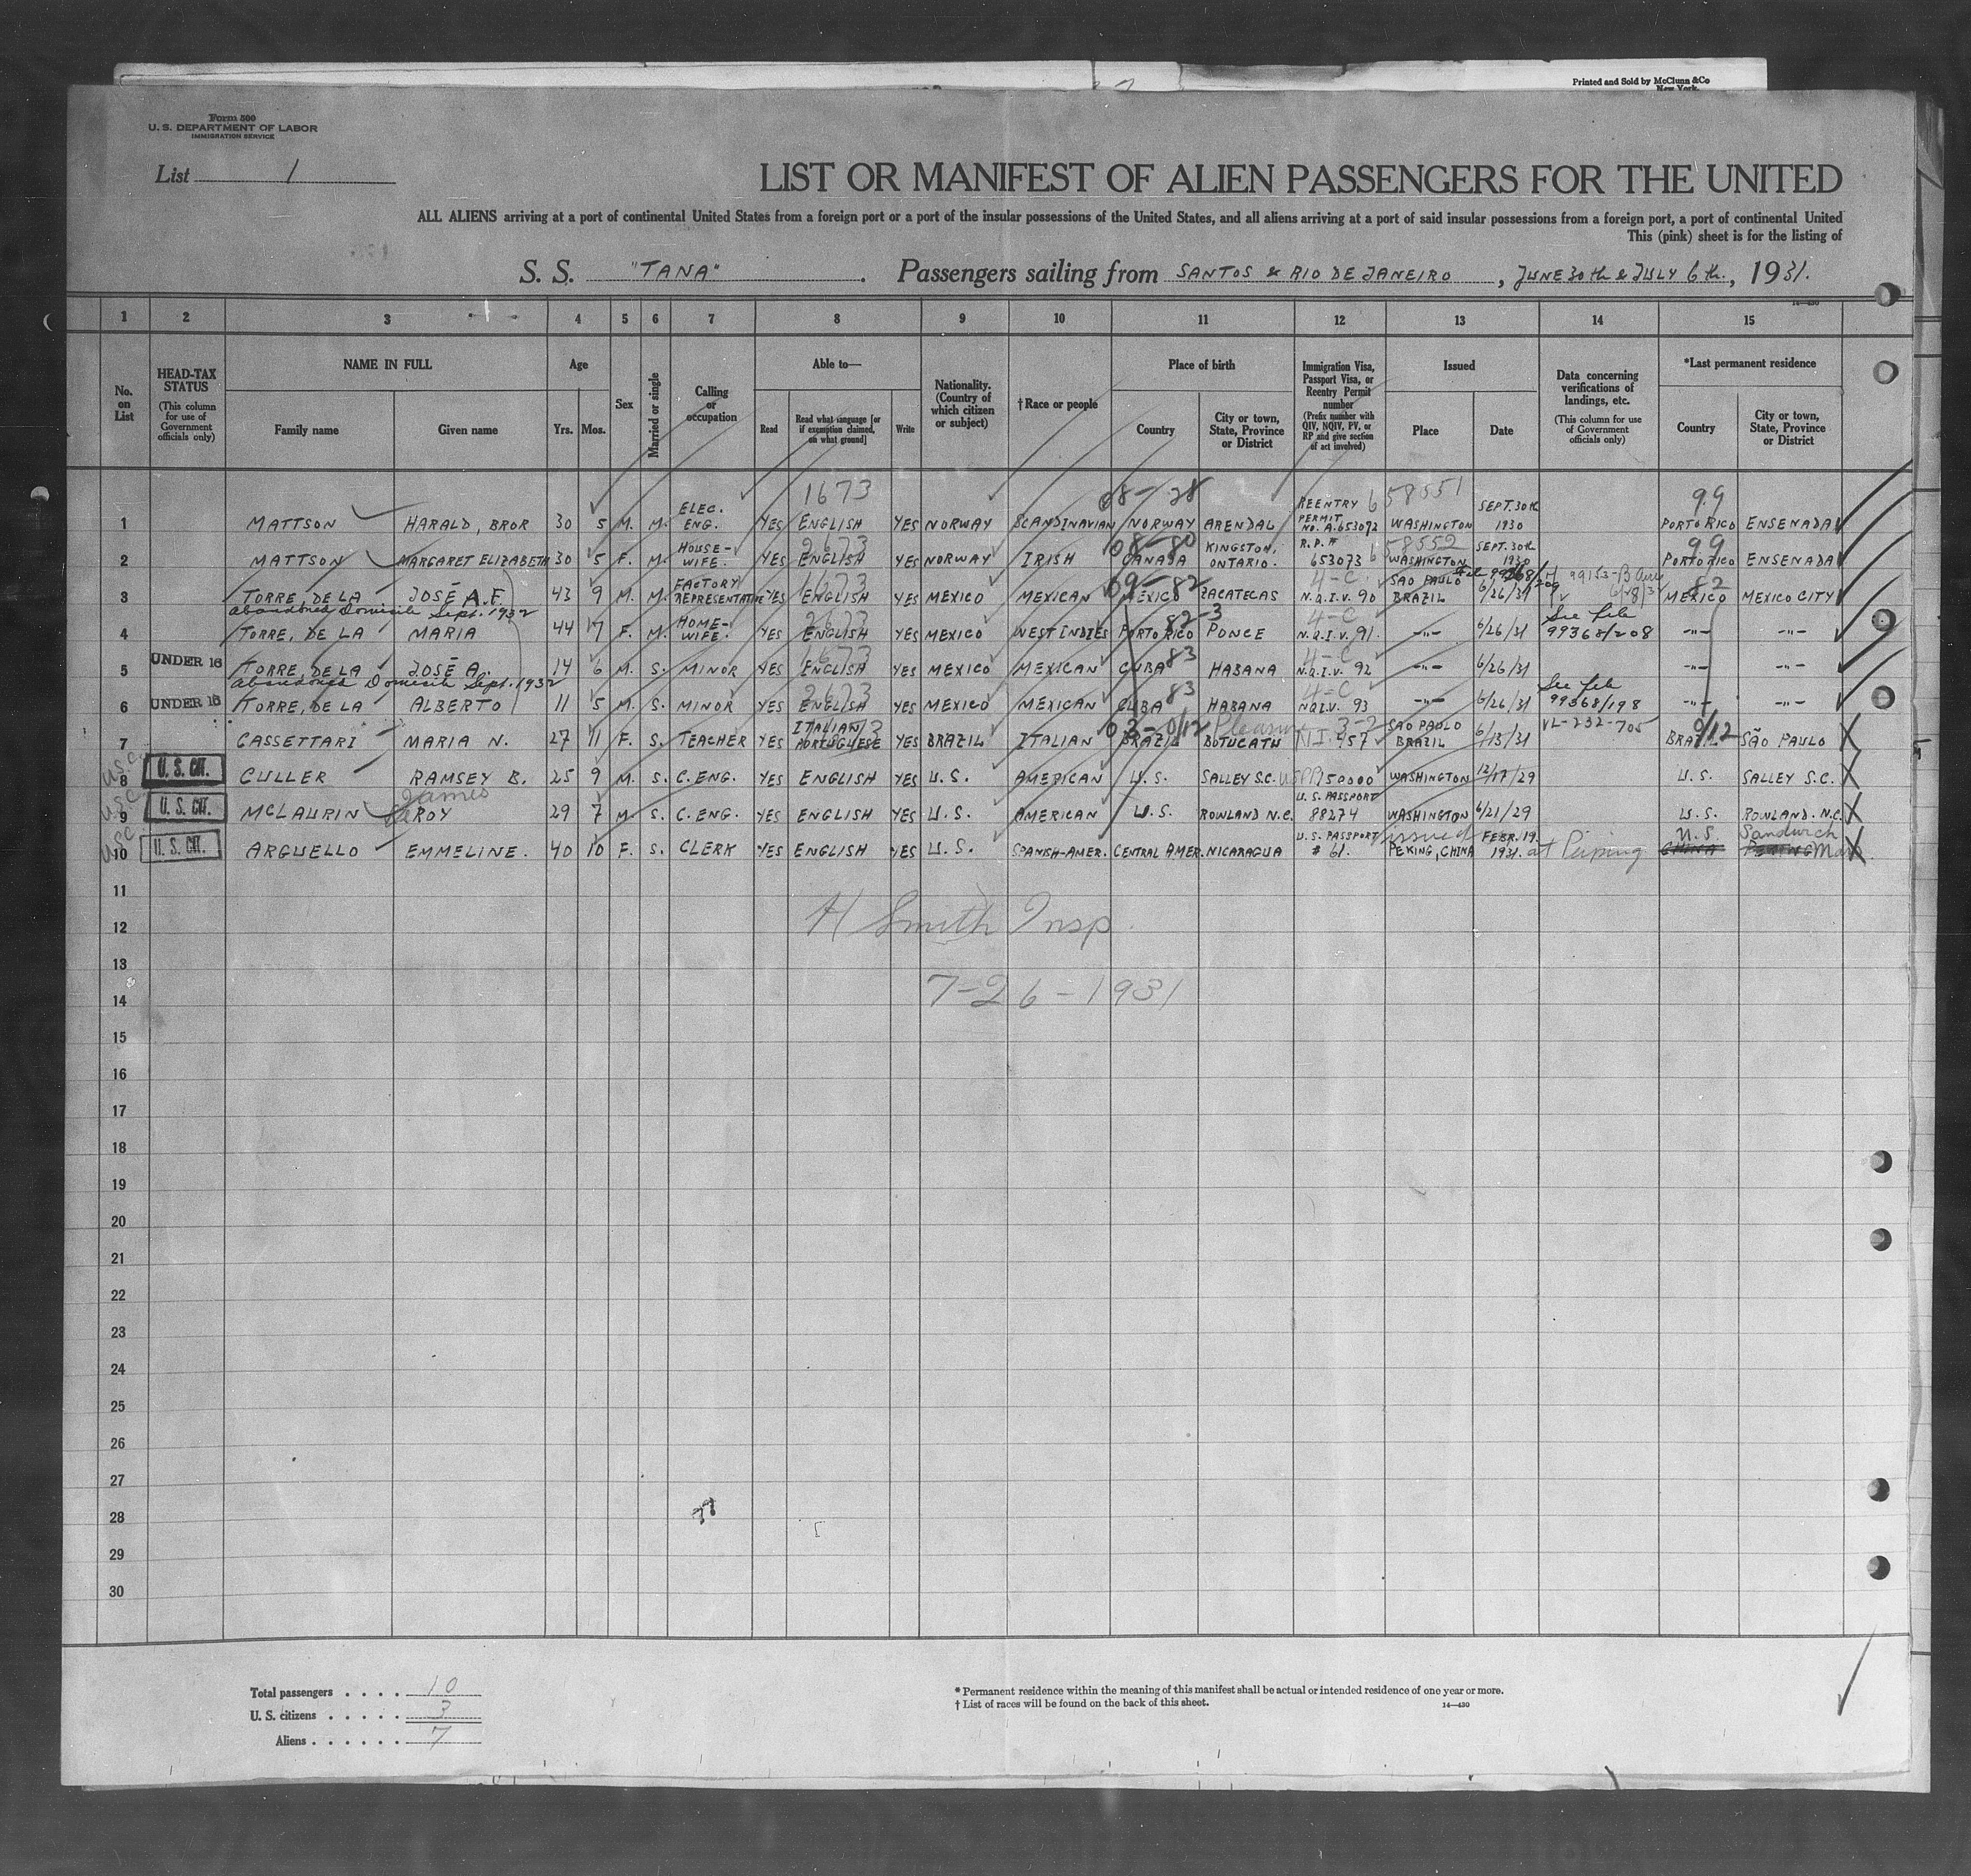 Printed and Sold by McClunn & Co
New York.
Form 500
U. S. DEPARTMENT OF LABOR
IMMIGRATION SERVICE
List 1
LIST OR MANIFEST OF ALIEN PASSENGERS FOR THE UNITED
ALL ALIENS arriving at a port of continental United States from a foreign port or a port of the insular possessions of the United States, and all aliens arriving at a port of said insular possessions from a foreign port, a port of continental United
This (pink) sheet is for the listing of
S. S. "TANA". Passengers sailing from SANTOS & RIO DE JANEIRO, JUNE 30th & JULY 6th., 1931.
14—430
1 2 3 4 5 6 7 8 9 10 11 12 13 14 15
No. on List
HEAD-TAX STATUS
(This column for use of Government officials only)
NAME IN FULL
Family name Given name
Age
Yrs. Mos.
Sex
Married or single
Calling or occupation
Able to—
Read Read what language [or if exemption claimed, on what ground] Write
Nationality. (Country of which citizen or subject)
†Race or people
Place of birth
Country City or town, State, Province or District
Immigration Visa, Passport Visa, or Reentry Permit number
(Prefix number with QIV, NQIV, PV, or RP and give section of act involved)
Issued
Place Date
Data concerning verifications of landings, etc.
(This column for use of Government officials only)
*Last permanent residence
Country City or town, State, Province or District
1673 08-28 658551 99
1 MATTSON HARALD, BROR 30 5 M. M. ELEC. ENG. YES ENGLISH YES NORWAY SCANDINAVIAN NORWAY ARENDAL REENTRY PERMIT NO. A.653072 WASHINGTON SEPT. 30th 1930 PORTO RICO ENSENADA
2673 08-80 658552 99
2 MATTSON MARGARET ELIZABETH 30 5 F. M. HOUSE-WIFE. YES ENGLISH YES NORWAY IRISH CANADA KINGSTON, ONTARIO. R.P.# 653073 WASHINGTON SEPT. 30th 1930 PORTO RICO ENSENADA
1673 09-82 4-C 82
3 TORRE, DE LA JOSÉ A.F. 43 9 M. M. FACTORY REPRESENTATIVE YES ENGLISH YES MEXICO MEXICAN MEXICO ZACATECAS N.Q.I.V. 90 SAO PAULO BRAZIL 6/26/31 MEXICO MEXICO CITY
abandoned Domicile Sept. 1932
2673 82-3 4-C See file
4 TORRE, DE LA MARIA 44 7 F. M. HOME-WIFE. YES ENGLISH YES MEXICO WEST INDIES PORTO RICO PONCE N.Q.I.V. 91. -"- 6/26/31 99368/208 -"- -"-
1673 83 4-C
5 UNDER 16 TORRE, DE LA JOSÉ A. 14 6 M. S. MINOR YES ENGLISH YES MEXICO MEXICAN CUBA HABANA N.Q.I.V. 92 -"- 6/26/31 -"- -"-
abandoned Domicile Sept. 1932
2673 83 4-C See file
6 UNDER 16 TORRE, DE LA ALBERTO 11 5 M. S. MINOR YES ENGLISH YES MEXICO MEXICAN CUBA HABANA N.Q.I.V. 93 -"- 6/26/31 99368/198 -"- -"-
7 CASSETTARI MARIA N. 27 11 F. S. TEACHER YES ITALIAN PORTUGUESE YES BRAZIL ITALIAN BRAZIL BOTUCATU 957 3-2 SAO PAULO BRAZIL 6/13/31 VL-232-705 BRAZIL SÃO PAULO
8 U. S. CIT. CULLER RAMSEY B. 25 9 M. S. C. ENG. YES ENGLISH YES U.S. AMERICAN U.S. SALLEY S.C. 150000 WASHINGTON 12/17/29 U.S. SALLEY S.C.
James
9 U. S. CIT. MCLAURIN ROY 29 7 M. S. C. ENG. YES ENGLISH YES U.S. AMERICAN U.S. ROWLAND N.C. U.S. PASSPORT 88274 WASHINGTON 6/21/29 U.S. ROWLAND. N.C.
10 U. S. CIT. ARGUELLO EMMELINE. 40 10 F. S. CLERK YES ENGLISH YES U.S. SPANISH-AMER. CENTRAL AMER. NICARAGUA U.S. PASSPORT # 61. issued PEKING, CHINA FEBR. 19. 1931. at Peiping U.S. CHINA Sandwich PEKING Mass
11
12
H Smith Insp.
13
14
7-26-1931
15
16
17
18
19
20
21
22
23
24
25
26
27
28
29
30
Total passengers . . . . 10
U. S. citizens . . . . . 3
Aliens . . . . . . 7
* Permanent residence within the meaning of this manifest shall be actual or intended residence of one year or more.
† List of races will be found on the back of this sheet. 14—430